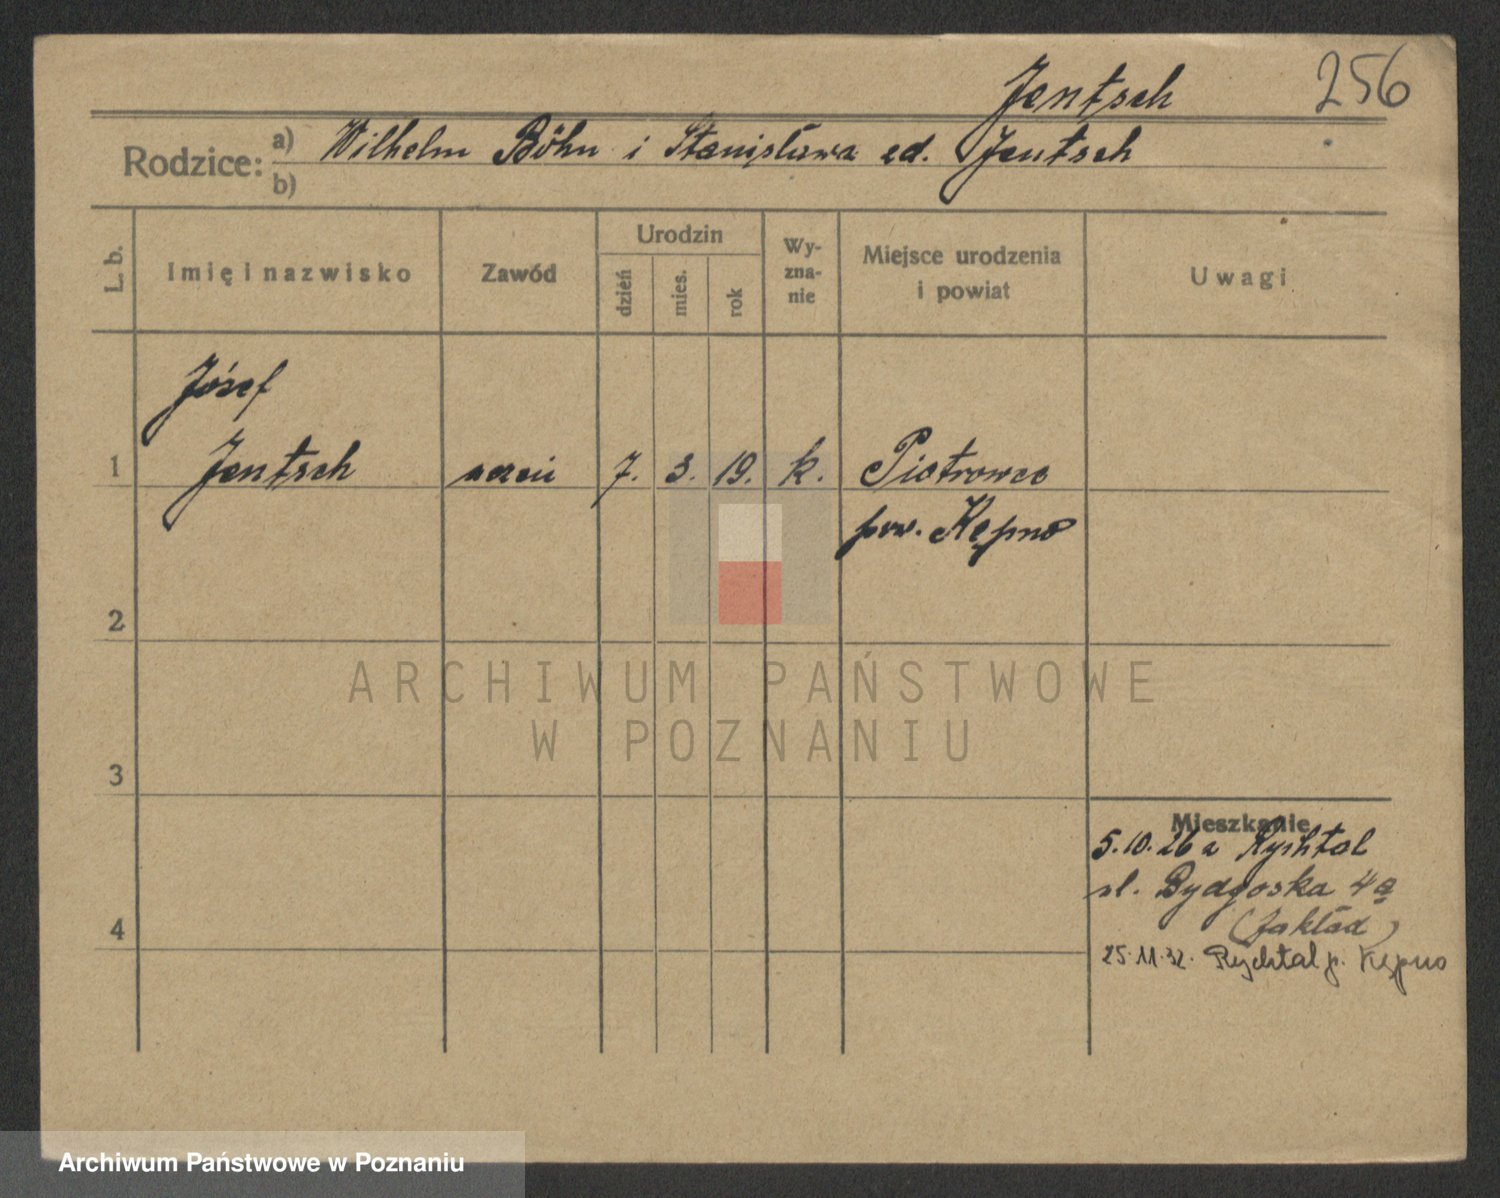 256
Jentsch
Rodzice: a) Wilhelm Böhn i Stanisława ed. Jentsch
b)
L. b.
Imię i nazwisko
Zawód
Urodzin
dzień
mies.
rok
Wy-
zna-
nie
Miejsce urodzenia
i powiat
Uwagi
Józef
1 Jentsch uczeń 7. 3. 19. k. Piotrowce
pow. Kępno
2
3
4
Mieszkanie
5.10.26 z Rychtal
ul. Bydgoska 4a
(Zakład)
25.11.32. Rychtal p. Kępno
ARCHIWUM PAŃSTWOWE
W POZNANIU
Archiwum Państwowe w Poznaniu